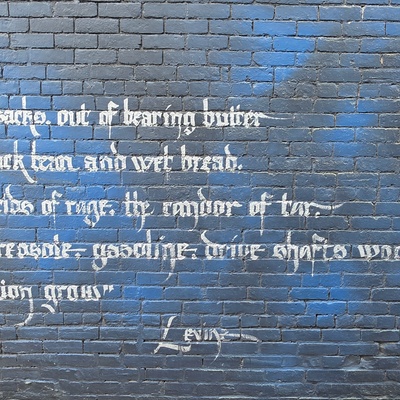 sacks, out of bearing butter
ack bean and wet bread.
ids of rage, the candor of tar,
reosote, gasoline, drive shafts woo
ion grow"
Levine